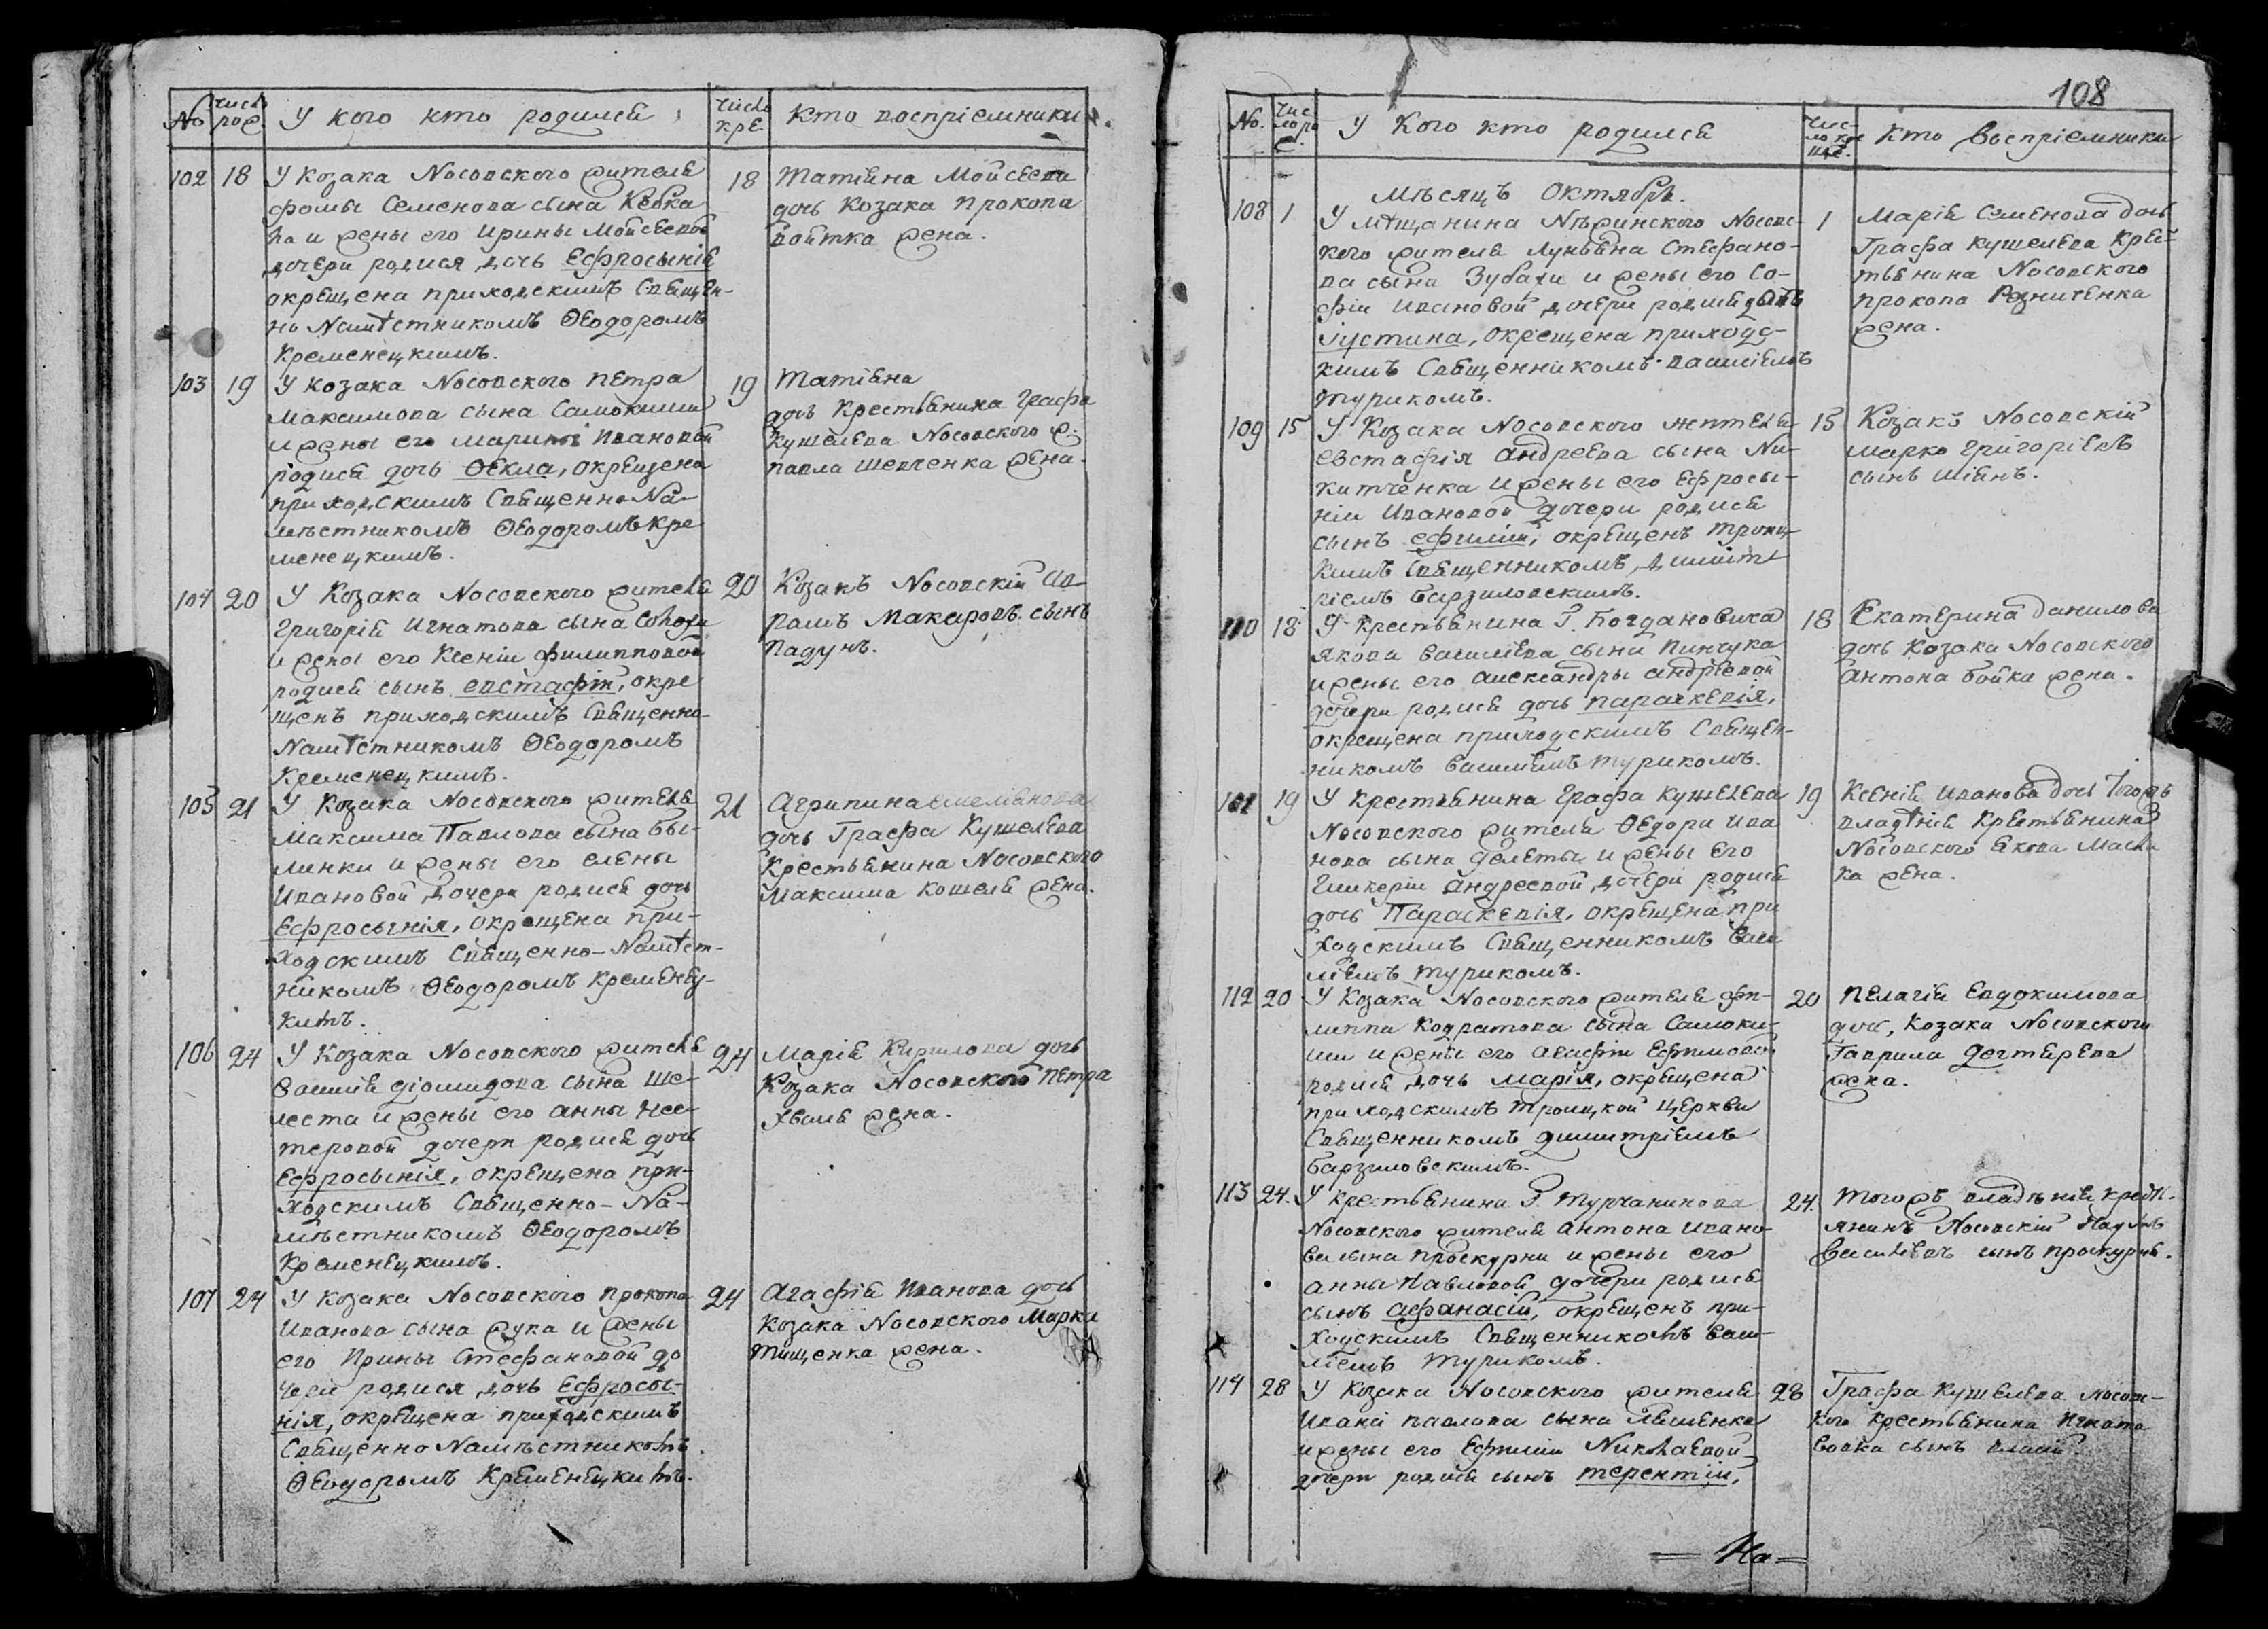 108
No число рож. У кого кто родился число кре. Кто воспріемники.
102 18 У козака Носовского жителя
Фомы Семенова сына
и жены его Ирины Мойсеевой
дочери родися дочь Ефросынія
окрещена приходскимъ Священ-
но Намѣстникомъ Ѳеодоромъ
Кременецкимъ.
18 Татіана Мойсеева
дочь козака Прокопа
Войтка жена.
103 19 У козака Носовского Петра
Максимова сына Самокиши
и жены его Марины Ивановой
родися дочь Ѳекла, окрещена
приходскимъ Священно-На-
мѣстникомъ Ѳеодоромъ Кре
менецкимъ.
19 Татіана
дочь крестьянина Графа
Кушелева Носовского ж.
Павла Шевченка жена.
104 20 У козака Носовского жителя
Григорія Игнатова сына
и жены его Ксеніи Филипповой
родися сынъ Евстафій, окре
щенъ приходскимъ Священно-
Намѣстникомъ Ѳеодоромъ
Кременецкимъ.
20 Козакъ Носовскій Ав
рамъ Макаровъ сынъ
Падунъ.
105 21 У козака Носовского жителя
Максима Павлова сына Бы-
линки и жены его Елены
Ивановой дочери родися дочь
Ефросынія, окрещена при-
ходскимъ Священно-Намѣст-
никомъ Ѳеодоромъ Кременец-
кимъ.
21 Агрипина Емеліанова
дочь Графа Кушелева
крестьянина Носовского
Максима Кошеля жена.
106 24 У козака Носовского жителя
Василія Діомидова сына Ше-
леста и жены его Анны Нес-
теровой дочери родися дочь
Ефросынія, окрещена при-
ходскимъ Священно-На-
мѣстникомъ Ѳеодоромъ
Кременецкимъ.
24 Марія Кирилова дочь
козака Носовского Петра
Хваля жена.
107 24 У козака Носовского Прокопа
Иванова сына Жука и жены
его Ирины Стефановой до
чери родися дочь Ефросы-
нія, окрещена приходскимъ
Священно Намѣстникомъ
Ѳеодоромъ Кременецкимъ.
24 Агафія Иванова дочь
козака Носовского Марка
Тищенка жена.
No. Число рож. У кого кто родился Число кре ще. Кто воспріемники
Мѣсяцъ Октябрь.
108 1 У мѣщанина Нѣжинского Носовс-
кого жителя Лукьяна Стефано-
ва сына и жены его Со-
фіи Ивановой дочери родися дочь
Іустина, окрещена приходс-
кимъ Священникомъ Василіемъ
Турикомъ.
1 Марія Семенова дочь
Графа Кушелева крес-
тьянина Носовского
Прокопа Резниченка
жена.
109 15 У козака Носовского жителя
Евстафія Андреева сына Ни-
китченка и жены его Ефросы-
ніи Ивановой дочери родися
сынъ Ефимій, окрещенъ Троиц-
кимъ Священникомъ, Димит
ріемъ Барзиловскимъ.
15 Козакъ Носовскій
Марко Григоріевъ
сынъ Шіянъ.
110 18 У крестьянина Г. Богдановича
Якова Василіева сына Пинчука
и жены его Александры Андреевой
дочери родися дочь Параскевія,
окрещена приходскимъ Священ-
никомъ Василіемъ Турикомъ.
18 Екатерина Данилова
дочь козака Носовского
Антона Бойка жена.
111 19 У крестьянина Графа Кушелева
Носовского жителя Ѳедора Ива
нова сына и жены его
Гликеріи Андреевой дочери родися
дочь Параскевія, окрещена при
ходскимъ Священникомъ Васи
ліемъ Турикомъ.
19 Ксенія Иванова дочь тогожъ
владѣнія крестьянина
Носовского Якова
жена.
112 20 У козака Носовского жителя Фи-
липпа Кодратова сына Самоки-
ши и жены его Агафіи Ефимовой
родися дочь Марія, окрещена
приходскимъ Троицкой церкви
Священникомъ Димитріемъ
Барзиловскимъ.
20 Пелагія Евдокимова
дочь, козака Носовского
Гаврила Дегтярева
жена.
113 24. У крестьянина Г. Турчанинова
Носовского жителя Антона Ивано-
ва сына Проскурни и жены его
Анны Павловой дочери родися
сынъ Афанасій, окрещенъ при-
ходскимъ Священникомъ Васи-
ліемъ Турикомъ.
24. Тогожъ владѣнія кресть-
янинъ Носовскій Наумъ
Василіевъ сынъ Проскурня.
114 28 У козака Носовского жителя
Ивана Павлова сына
и жены его Ефиміи Николаевой
дочери родися сынъ Терентій,
28 Графа Кушелева Носовс-
кого крестьянина Игната
Вовка сынъ Власій
= На =